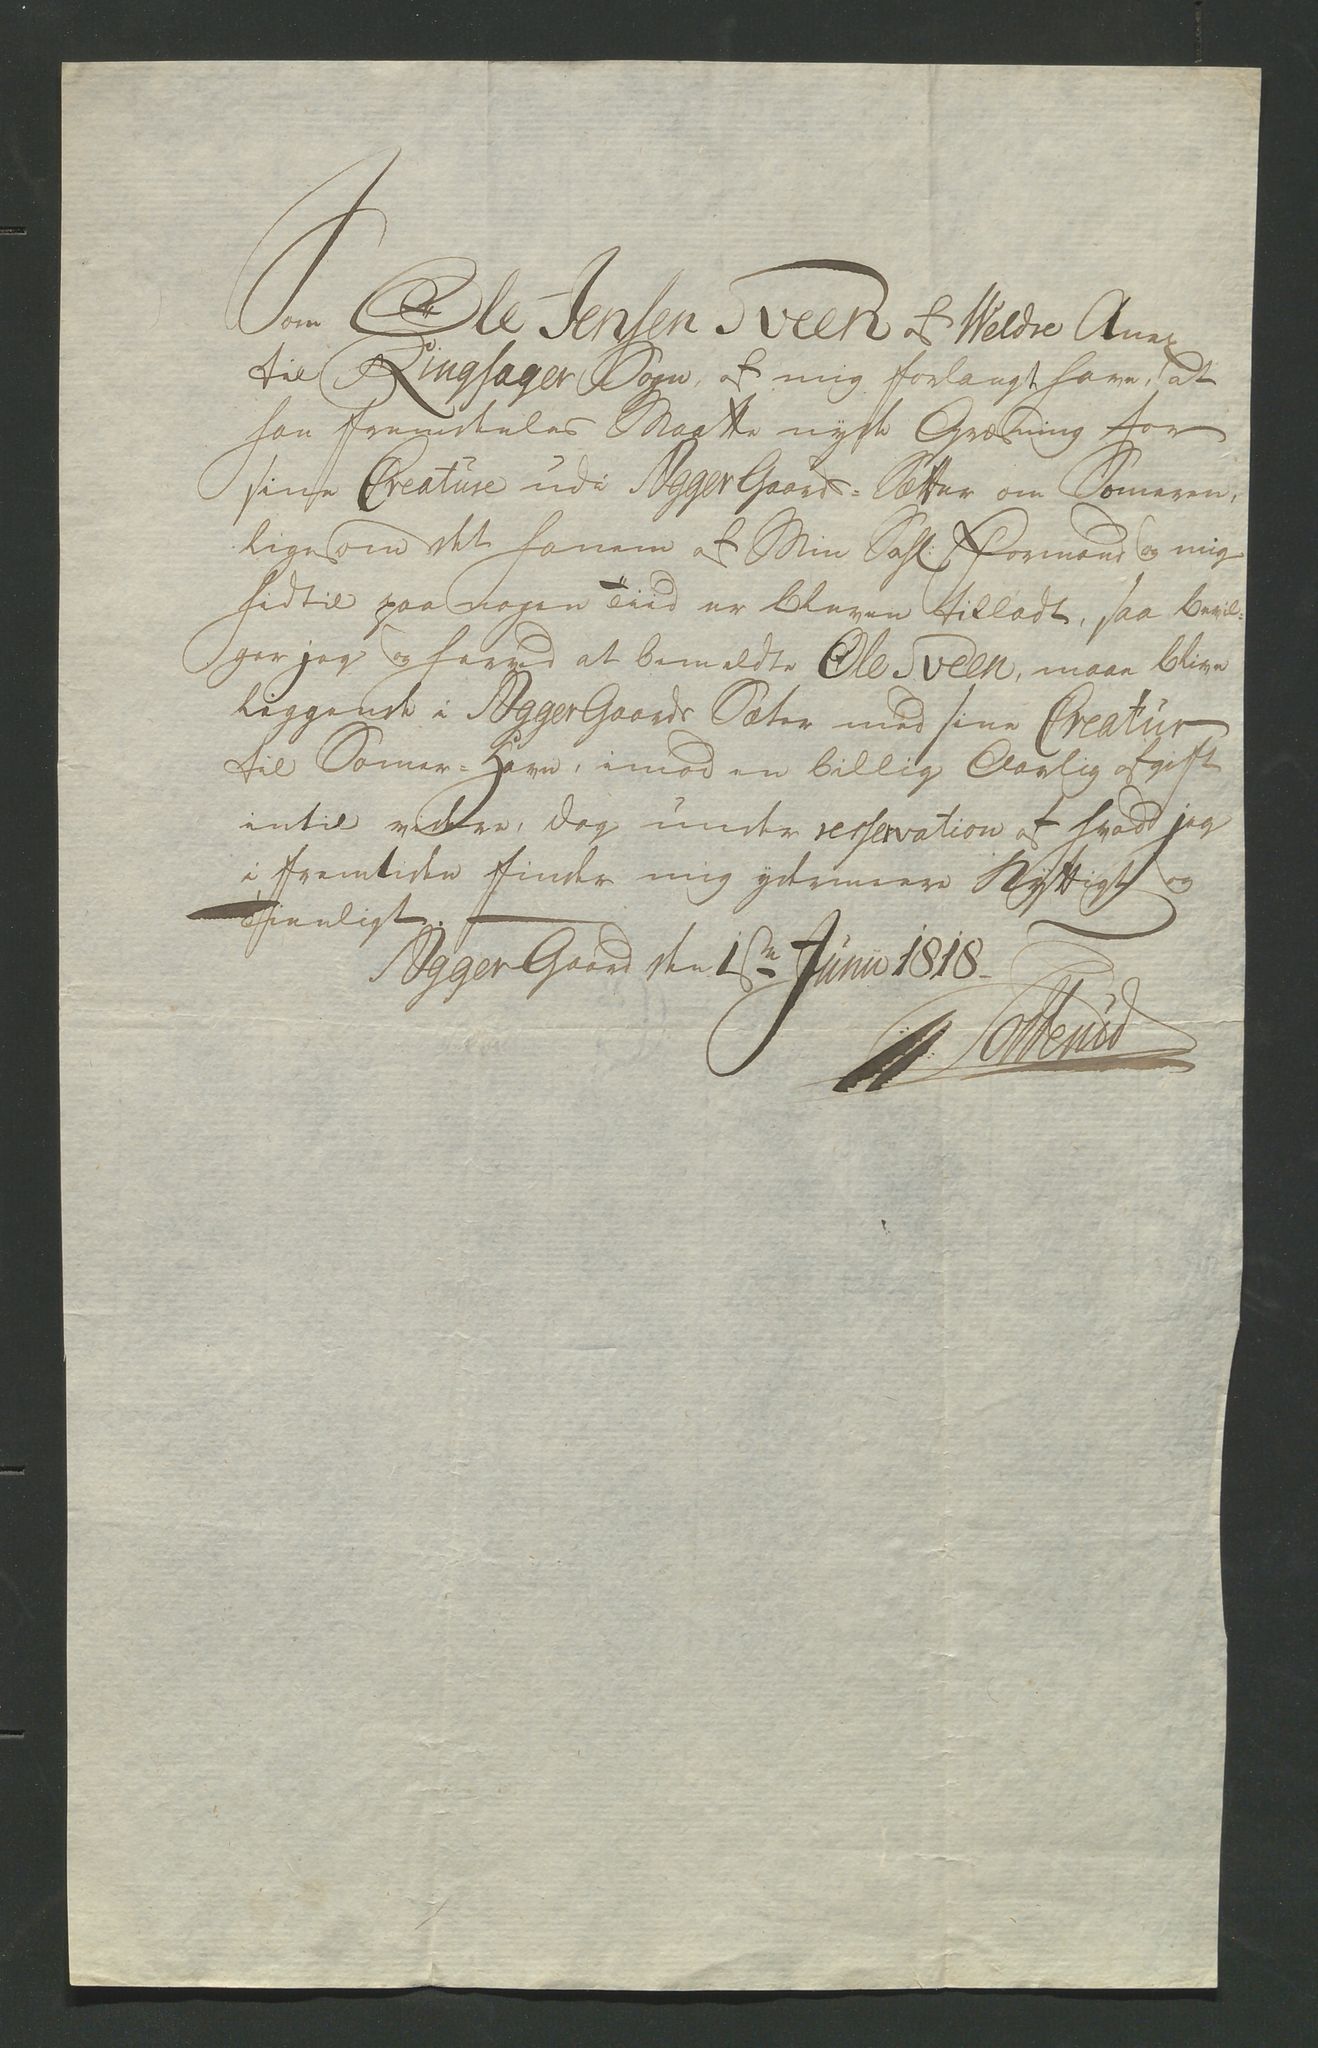 Som Ole Jensen Sveen af Weldre Anex
til Ringsager Sogn, af mig forlangt have, at
han fremdeeles Maatte nyde Græsning for
sine Creature udi Aggergaards-Sætter om Someren,
ligesom det hanem af Min Sahl: Formand og mig
hidtil paa nogen Tiid er bleven tilladt, saa bevil-
ger jeg og herved at bemeldte Ole Sveen, maae blive
liggende i AggerGaards Sæter med sine Creatur
til Somer-Havn, imod en billig Aarlig afgift
intil videre, dog under resservation af hvad jeg
i fremtiden finder mig ydermeere Nyttigt og
Tienligt.
AggerGaard den 1ste Junii 1818
Totterud